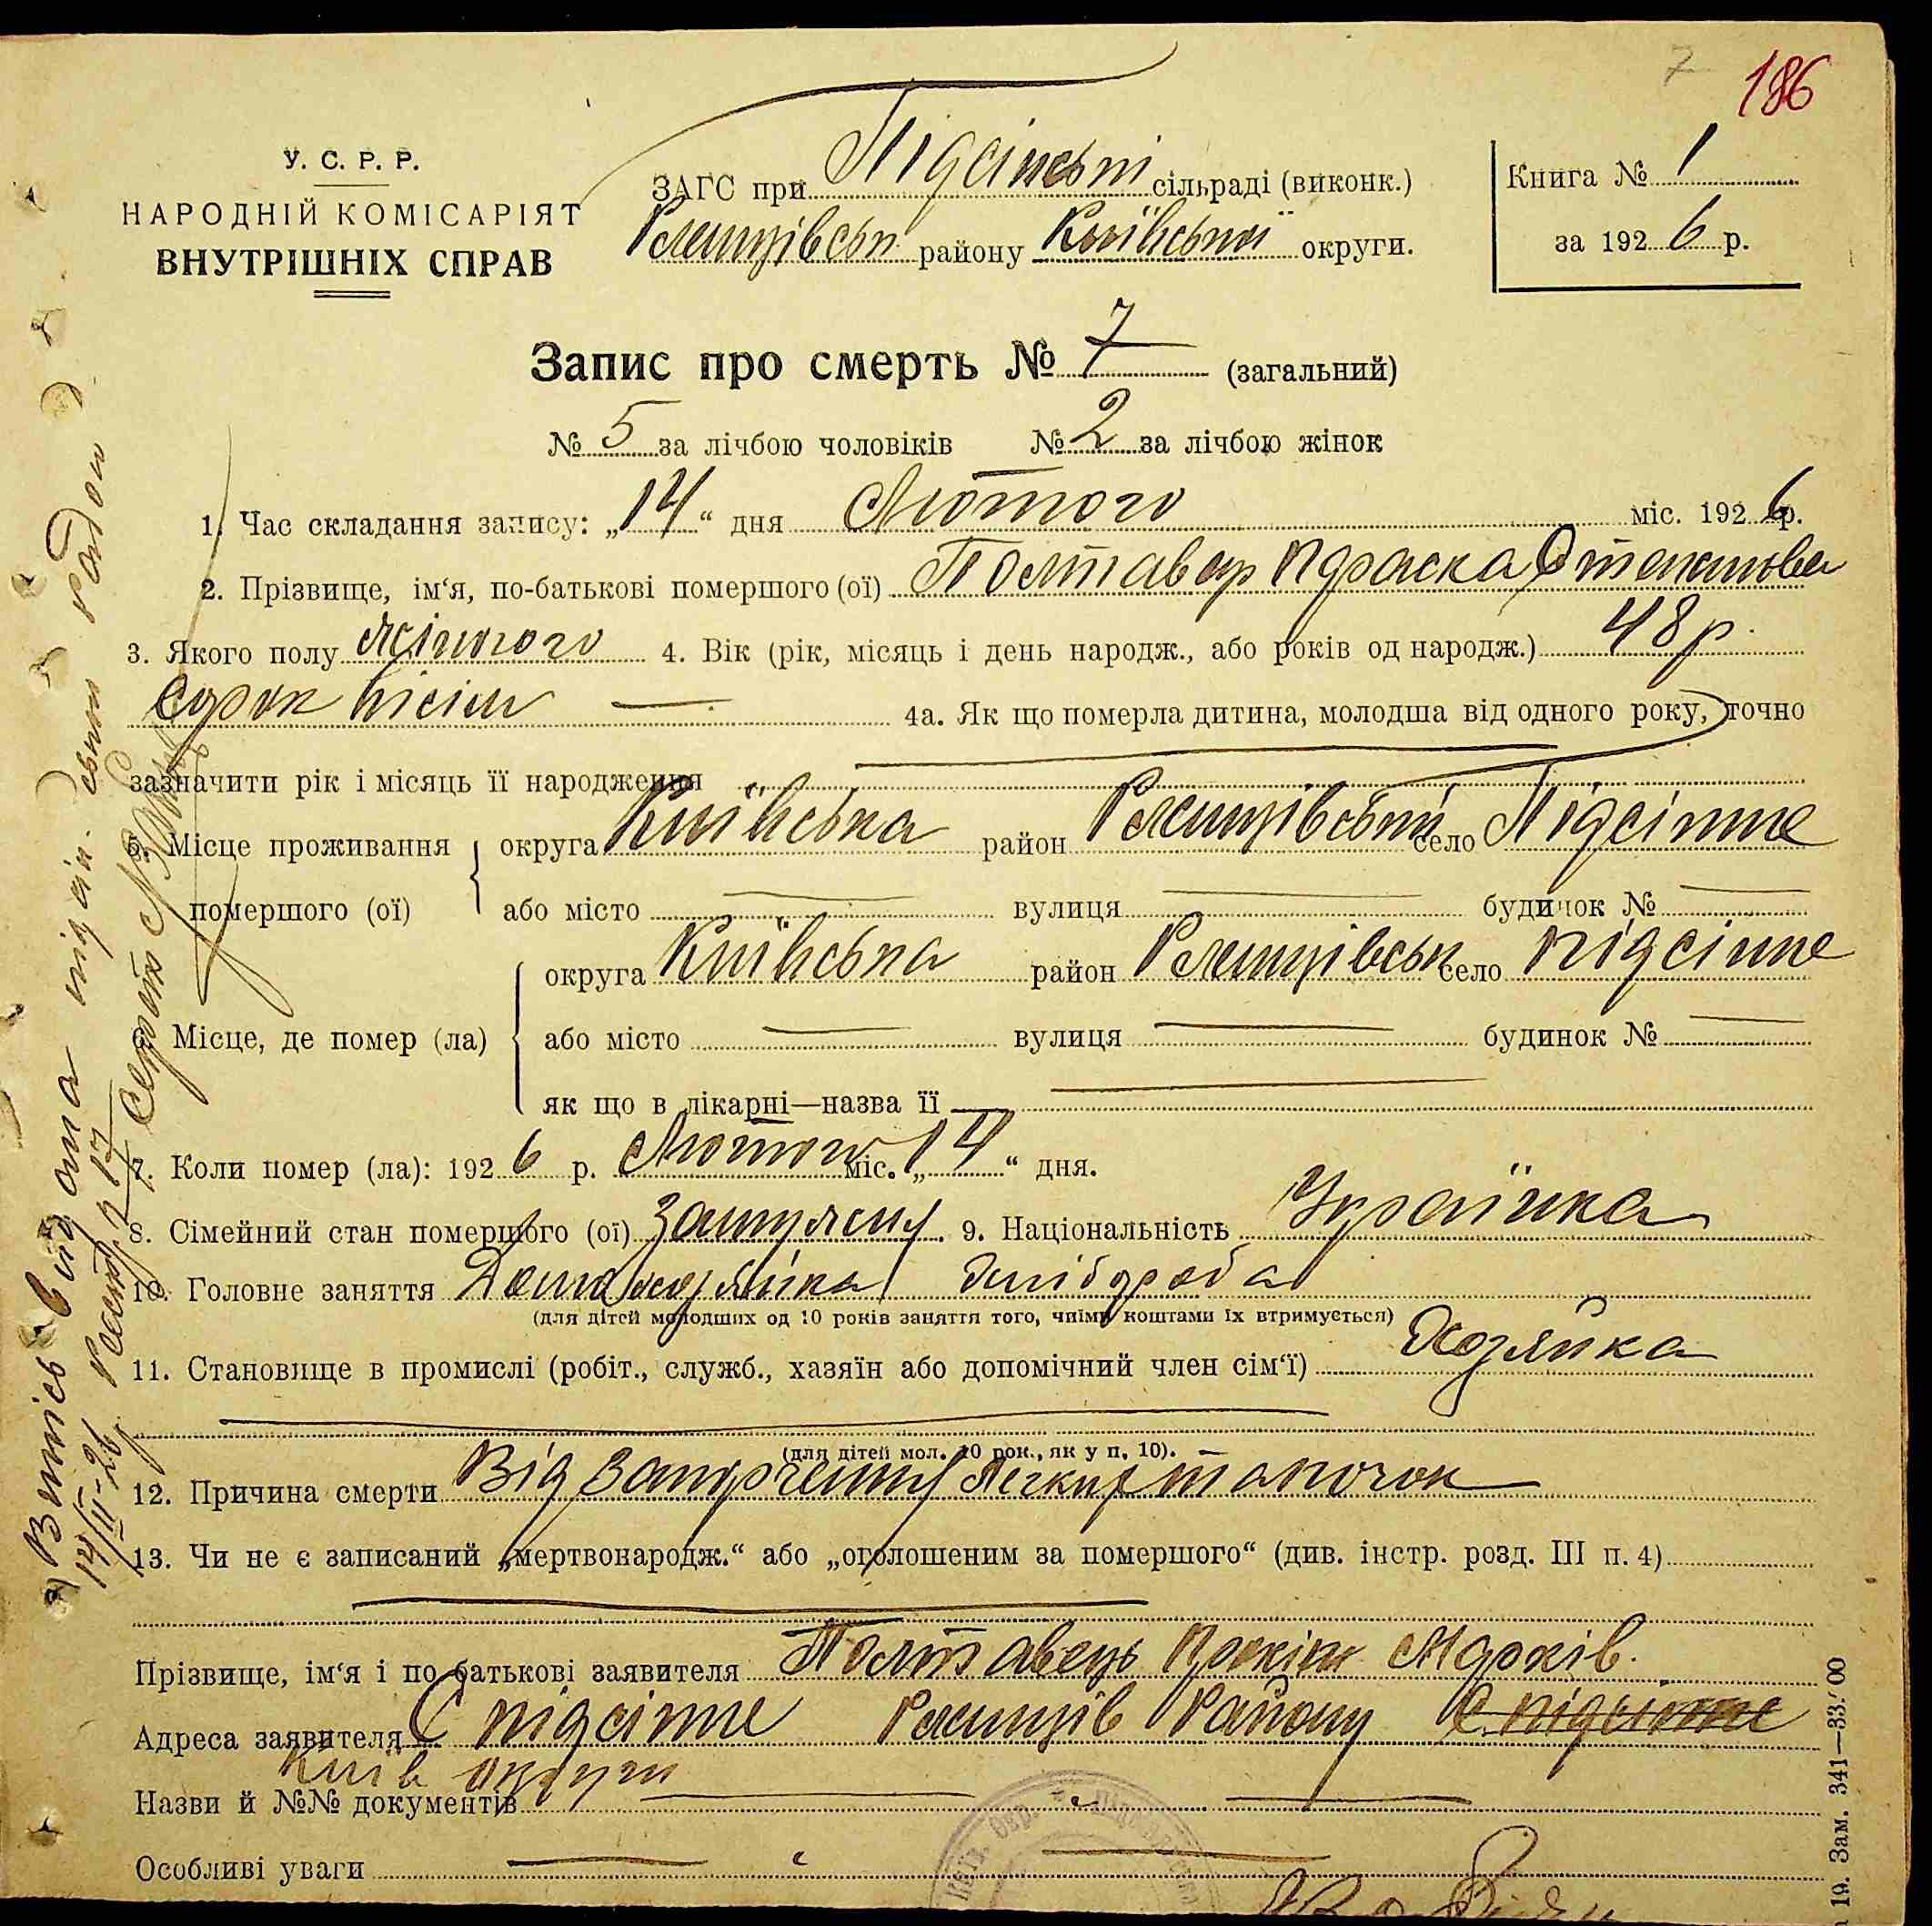 7 186
У. С. Р. Р.
НАРОДНІЙ КОМІСАРІЯТ
ВНУТРІШНІХ СПРАВ
ЗАГС при Підсінські сільраді (виконк.)
Ржищівськ району Київської округи.
Книга № 1
за 1926 р.
Запис про смерть № 7 (загальний)
№ 5 за лічбою чоловіків № 2 за лічбою жінок
1. Час складання запису: „14“ дня Лютого міс. 1926 р.
2. Прізвище, ім‘я, по-батькові помершого (ої) Полтавець Пдраска Степанова
3. Якого полу жіночого 4. Вік (рік, місяць і день народж., або років од народж.) 48 р.
сорок вісім — 4а. Як що померла дитина, молодша від одного року, точно
зазначити рік і місяць її народження
5. Місце проживання помершого (ої) округа Київська район Ржищівський село Підсінне
або місто — вулиця — будинок № —
Місце, де помер (ла) округа Київська район Ржищівськ село підсінне
або місто — вулиця — будинок № —
як що в лікарні—назва її —
7. Коли помер (ла): 1926 р. Лютого міс. „14“ дня.
8. Сімейний стан помершого (ої) Замужем. 9. Національність Українка
10. Головне заняття Домохозяйка хліборба
(для дітей молодших од 10 років заняття того, чиїми коштами їх втримується)
11. Становище в промислі (робіт., служб., хазяїн або допомічний член сім‘ї) Хозяйка
(для дітей мол. 10 рок., як у п. 10).
12. Причина смерти Від Легких
13. Чи не є записаний „мертвонародж.“ або „оголошеним за помершого“ (див. інстр. розд. III п. 4)
Прізвище, ім‘я і по батькові заявителя Полтавець Прокіп Марків.
Адреса заявителя С підсінне Ржищів Району С підсінне
Київ округи
Назви й №№ документів
Особливі уваги
14/II-26
19. Зам. 341—33.000